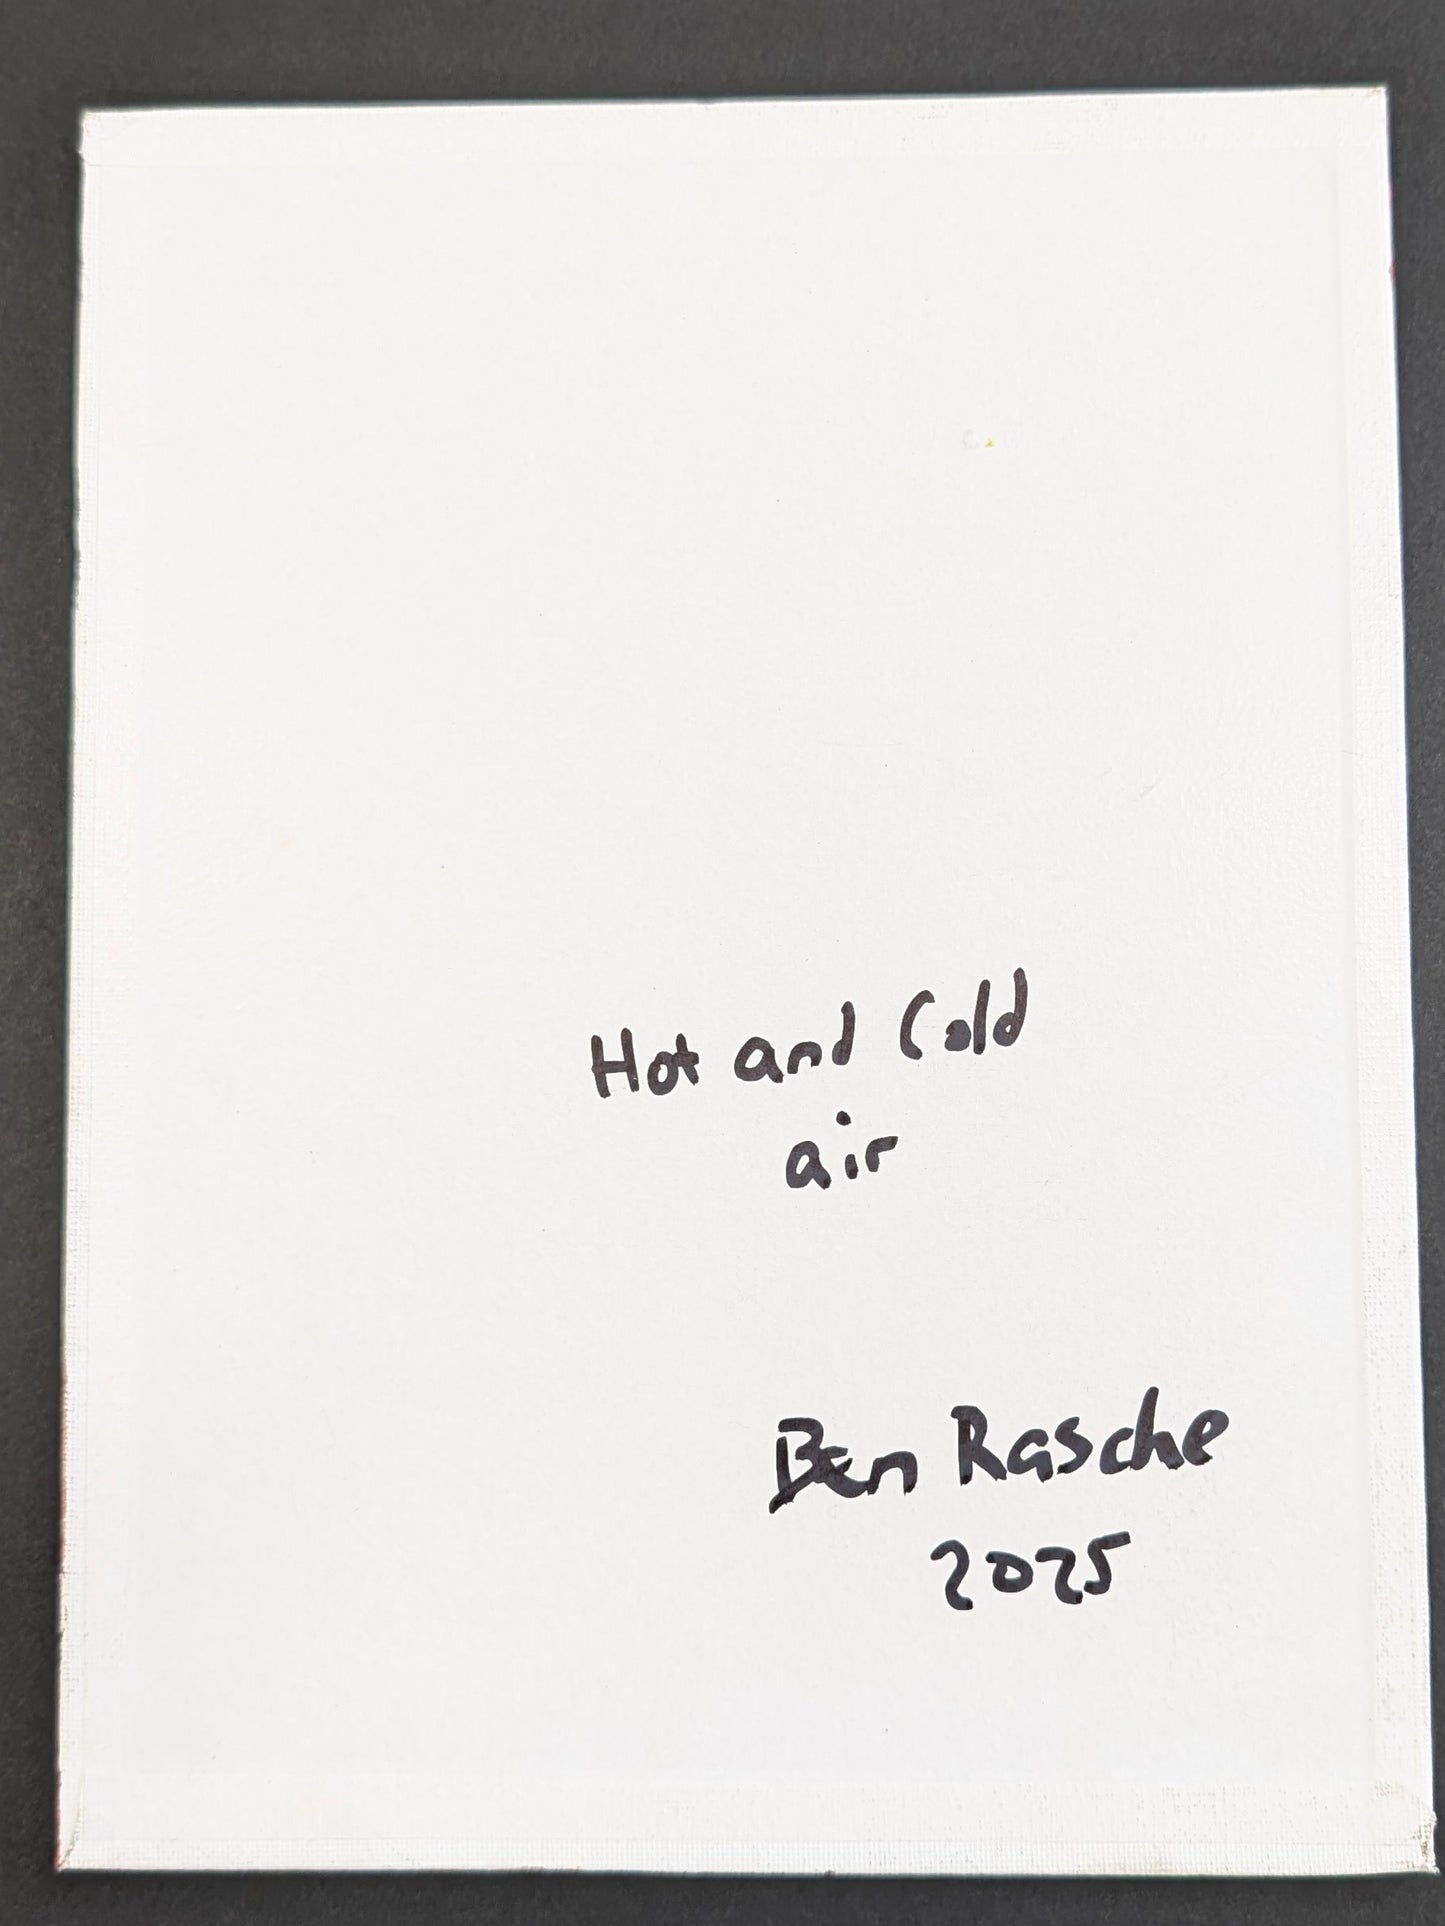 Hot and Cold
air
Ben Rasche
2025